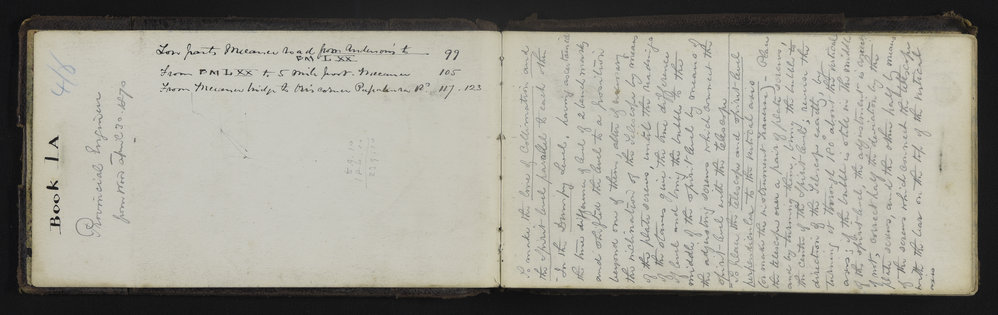 4/6
Book 1A
Provincial Engineer
from Wood April 30 1870
Low parts Meeanee road from Anderson's to
PM LXX 99
From PM LXX to 5 Mile post. Meeanee 105
From Meeanee bridge to this corner Papakura Rd 117.123
To make the line of Collimation and
the Spirit level parallel to each other
In the Dumpy Level, having ascertained
the true difference of level of 2 bench marks
and shifted the level to a position
beyond one of them, alter if necessary
the inclination of the telescope by means
of the plate screws until the readings
of the staves give the true difference
of level and bring the bubble to the
middle of the spirit level by means of
the adjusting screws which connect the
spirit level with the telescope
To place the telescope and spirit level
perpendicular to the vertical axis
(or make the instrument traverse) - Place
the telescope over a pair of plate screws
and by turning them, bring the bubble to
the centre of the spirit level; reverse the
direction of the telescope exactly, by
turning it through 180° about the vertical
axis, if the bubble is still in the middle
of the spirit level, the adjustment is correct
if not, correct half the deviation by the
plate screws, and the other half by means
of the screws which connect the telescope
with the bar on the top of the vertical
axis